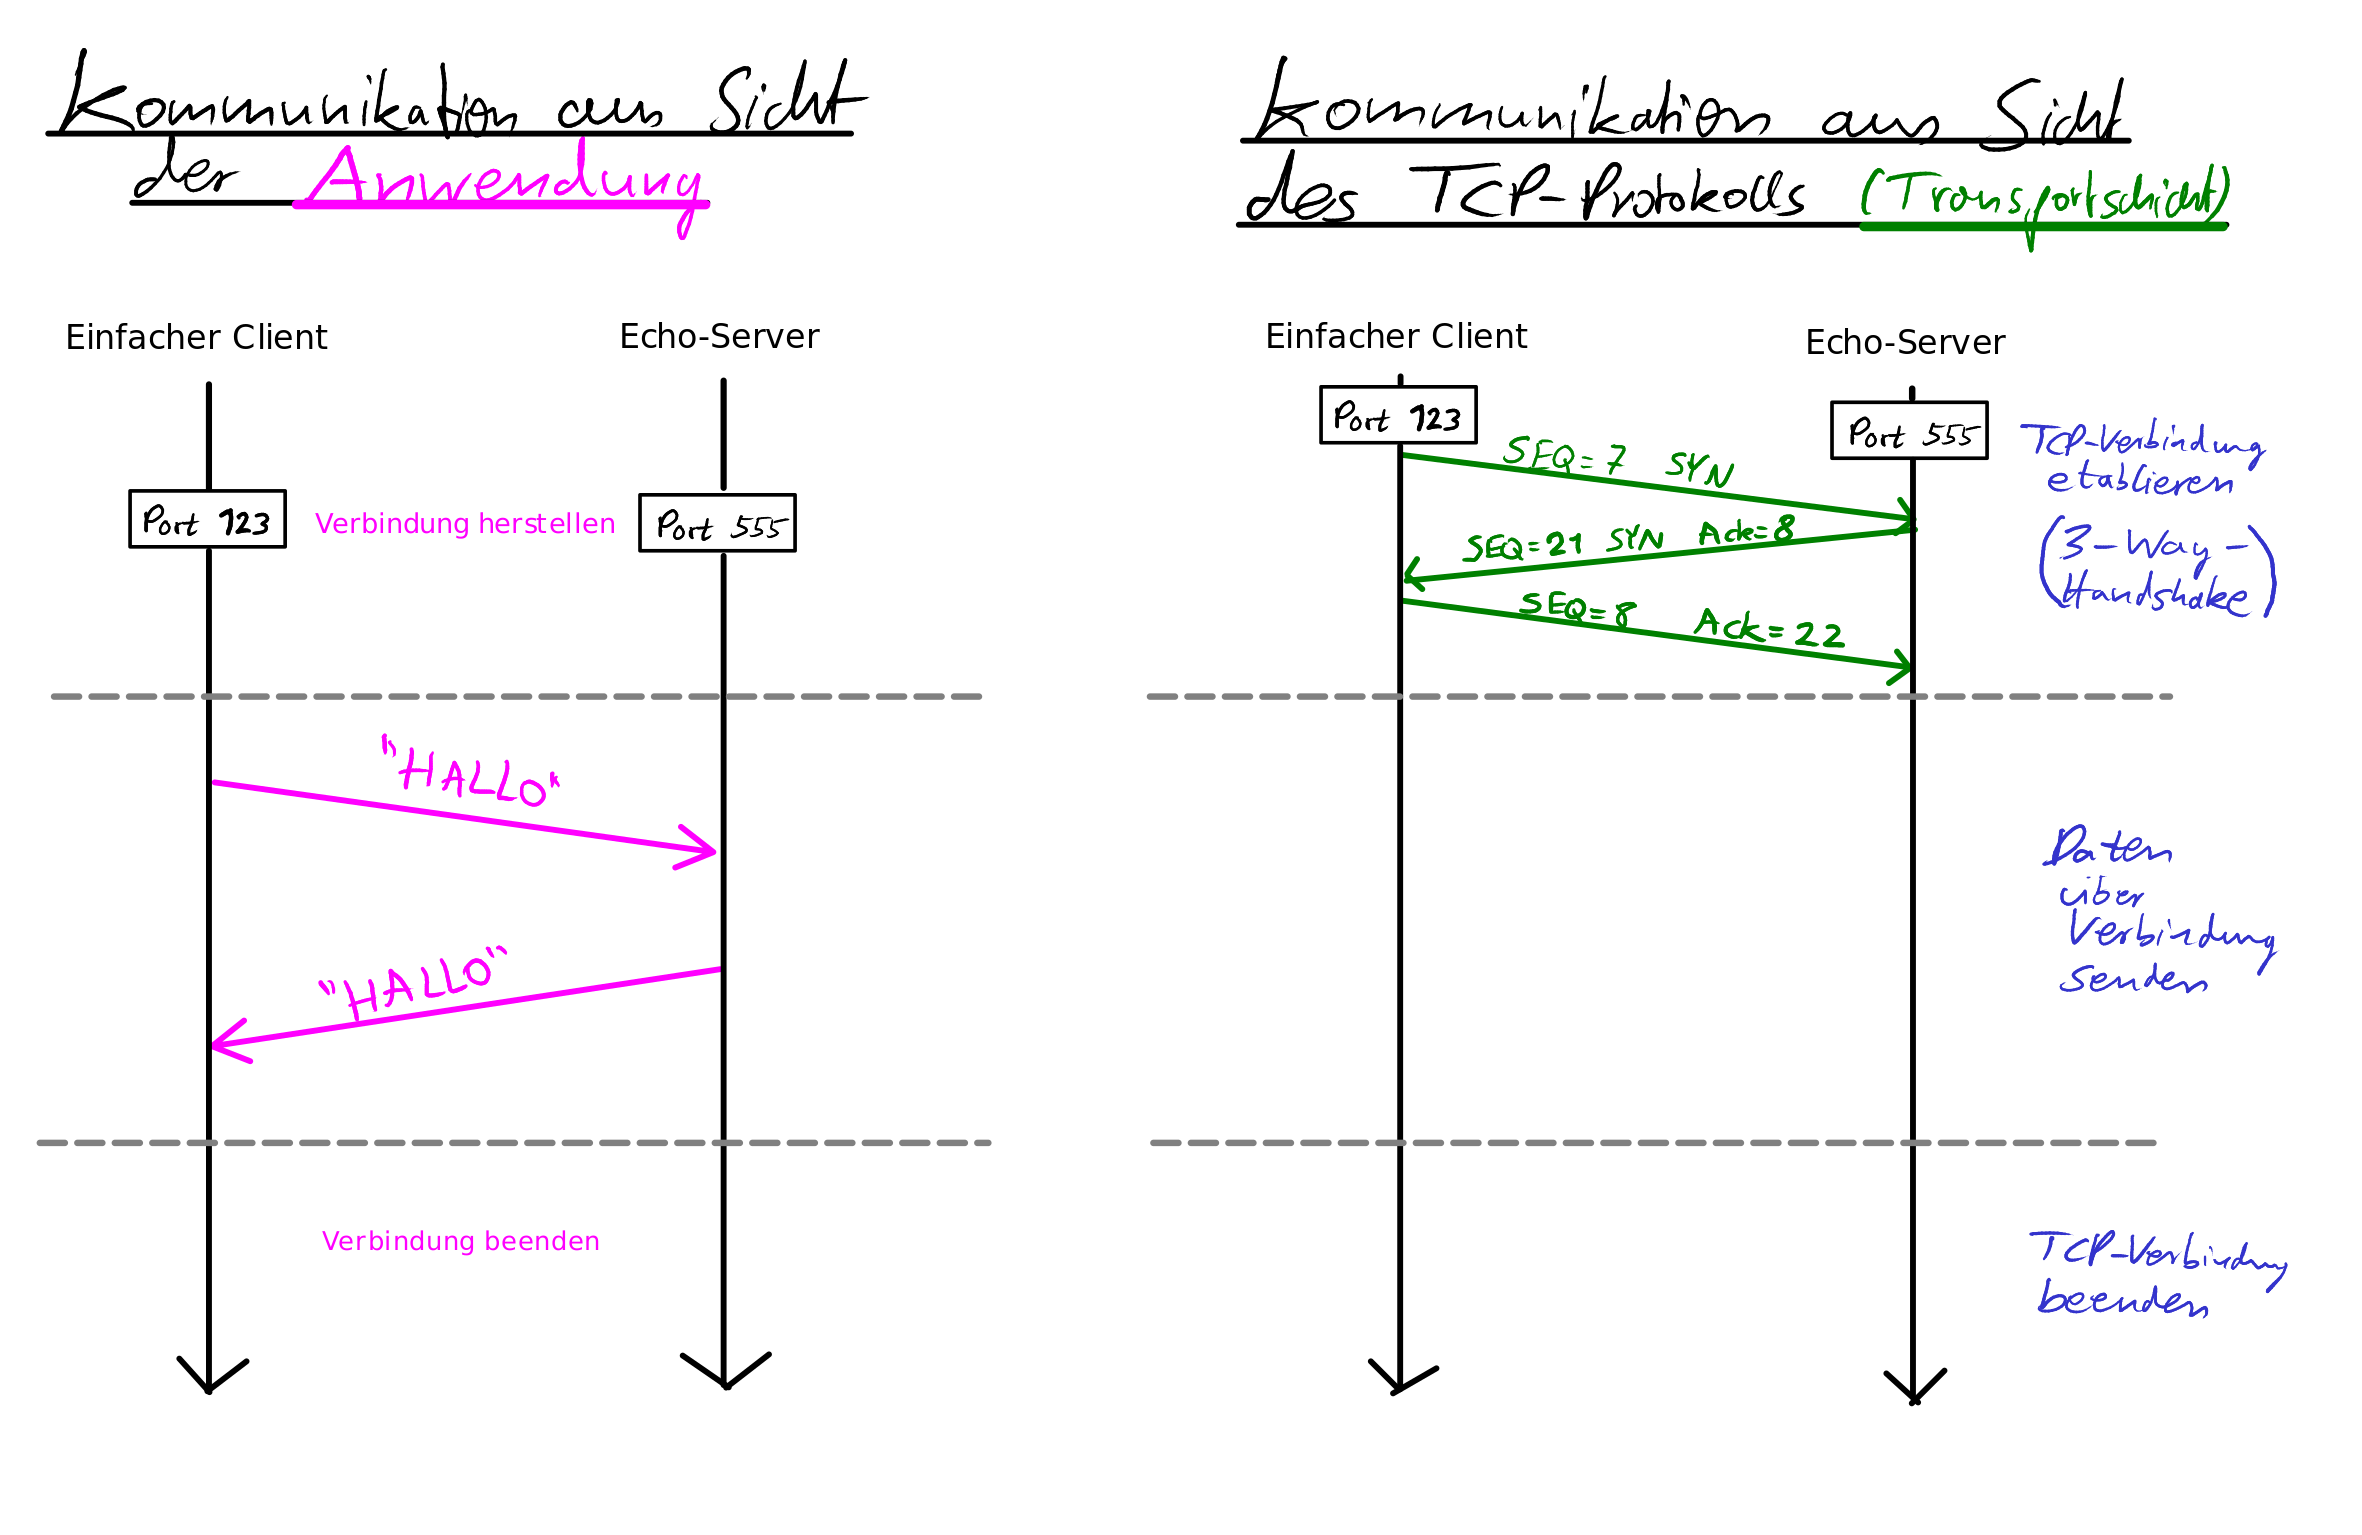 Kommunikation aus Sicht
der Anwendung
Einfacher Client
Echo-Server
Port 123
Verbindung herstellen
Port 555
"HALLO"
"HALLO"
Verbindung beenden
Kommunikation aus Sicht
des TCP-Protokolls (Transportschicht)
Einfacher Client
Echo-Server
Port 123
Port 555
SEQ=7 SYN
SEQ=21 SYN Ack=8
SEQ=8 Ack=22
TCP-Verbindung
etablieren
(3-Way-
Handshake)
Daten
über
Verbindung
senden
TCP-Verbindung
beenden